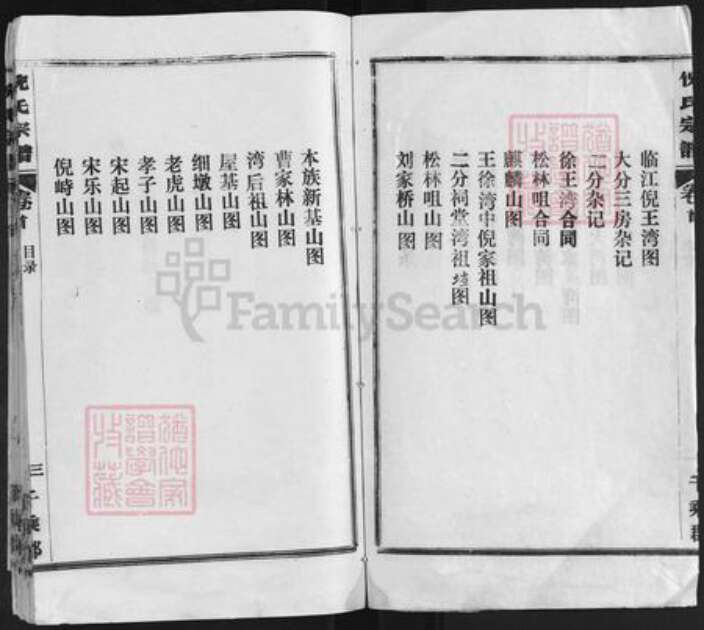 临江倪王湾图
大分三房杂记
二分杂记
徐王湾合同
松林咀合同
麒麟山图
王徐湾中倪家祖山图
二分祠堂湾祖坟图
松林咀山图
刘家桥山图
倪氏宗谱
卷首
千乘郡
本族新基山图
曹家林山图
湾后祖山图
屋基山图
细墩山图
老虎山图
孝子山图
宋起山图
宋乐山图
倪崎山图
倪氏宗谱
卷首
目录
三
千乘郡
FamilySearch